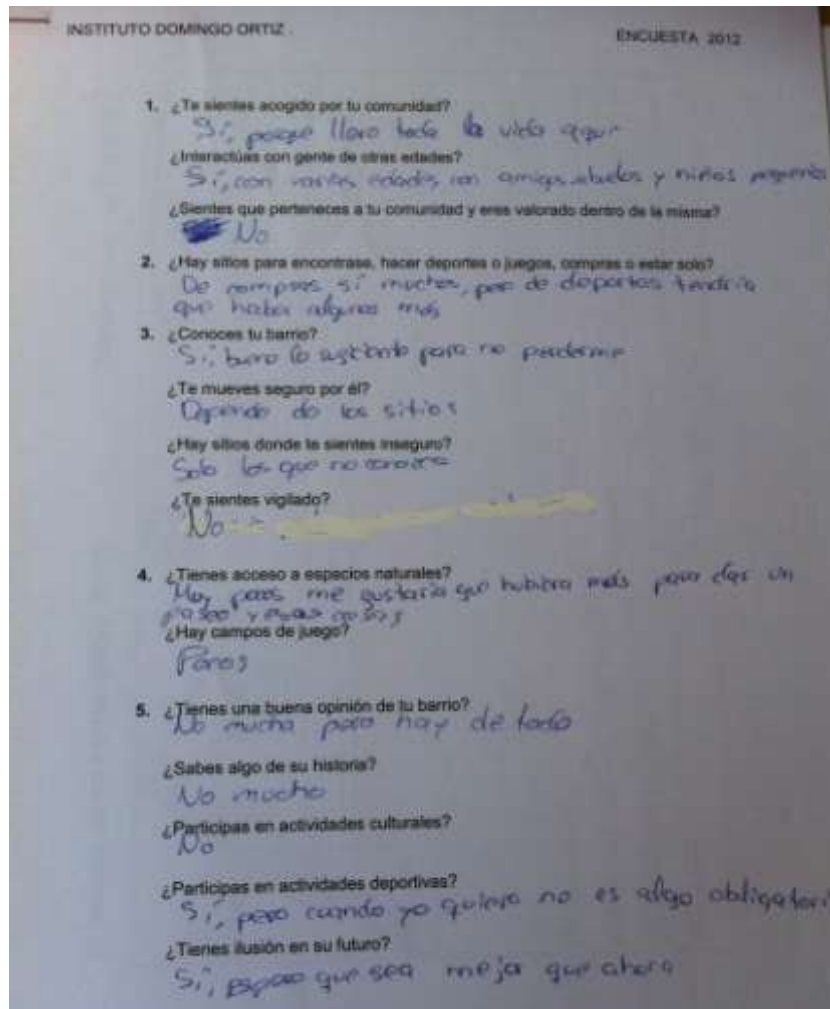 INSTITUTO DOMINGO ORTIZ.
ENCUESTA 2012
1. ¿Te sientes acogido por tu comunidad?
Sí, porque llevo toda la vida aquí
¿Interactúas con gente de otras edades?
Sí, con varias edades con amigos abuelos y niños pequeños
¿Sientes que perteneces a tu comunidad y eres valorado dentro de la misma?
No
2. ¿Hay sitios para encontrase, hacer deportes o juegos, compras o estar solo?
De compras sí muchos, pero de deportes tendría
que haber algunos más
3. ¿Conoces tu barrio?
Sí, bueno lo suficiente para no perderme
¿Te mueves seguro por él?
Depende de los sitios
¿Hay sitios donde te sientes inseguro?
Solo los que no conozco
¿Te sientes vigilado?
No
4. ¿Tienes acceso a espacios naturales?
Hay pocos me gustaría que hubiera más para dar un
paseo y esas cosas
¿Hay campos de juego?
Pocos
5. ¿Tienes una buena opinión de tu barrio?
No mucha pero hay de todo
¿Sabes algo de su historia?
No mucho
¿Participas en actividades culturales?
No
¿Participas en actividades deportivas?
Sí, pero cuando yo quiero no es algo obligatori
¿Tienes ilusión en su futuro?
Sí, espero que sea mejor que ahora